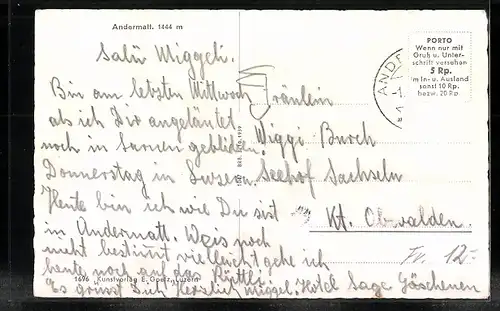 Andermatt. 1444 m
Salü Wiggeli.
Bin am letzten Mittwoch
als ich Dir angeläutet
noch in Sarnen geblieben.
Donnerstag in Luzern.
Heute bin ich wie Du sist
in Andermatt. Weis noch
nicht bestimt vielleicht gehe ich
heute noch auf das Rüttli.
Es grüsst Dich Herzlich Miggel. Hotel Sage Göschenen
1696 Kunstverlag E. Goetz, Luzern
Fräulein
Wiggi Burch
Seehof Sachseln
Kt. Obwalden
Fr. 12.-
ANDE
-1.
PORTO
Wenn nur mit
Gruß u. Unter-
schrift versehen
5 Rp.
im In- u. Ausland
sonst 10 Rp.
bezw. 20 Rp.